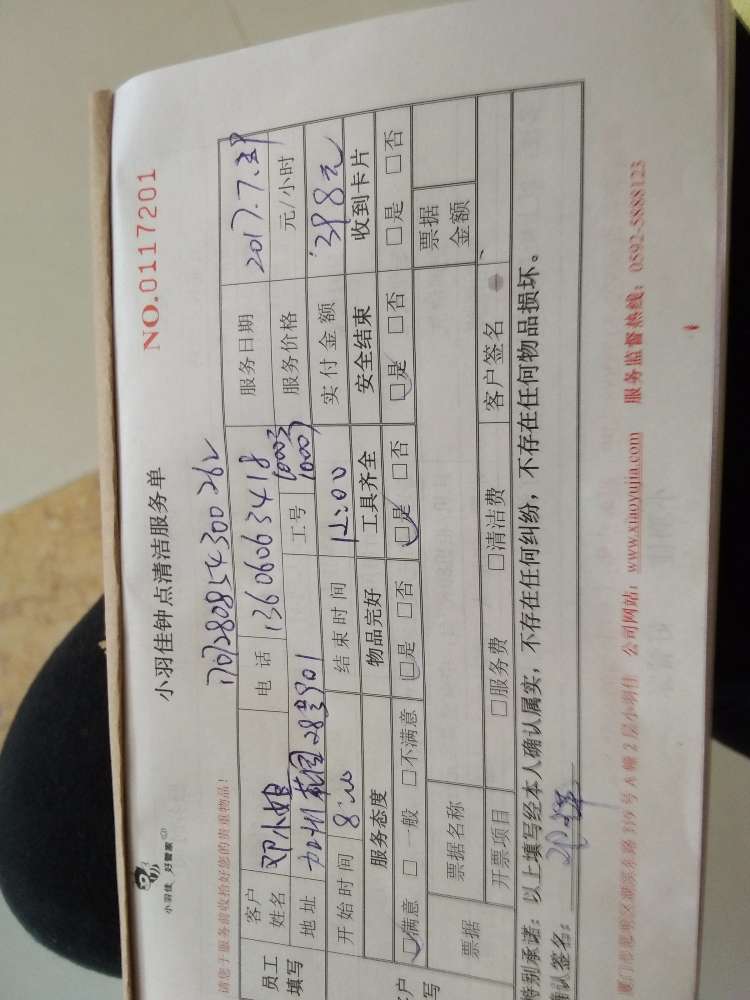 小羽佳 好管家
小羽佳钟点清洁服务单
NO.0117201
请您于服务前收拾好您的贵重物品!
员工填写
客户姓名 邓小姐 电话 13606063418 服务日期
地址 加州花园28号901 工号 服务价格 元/小时
开始时间 8:00 结束时间 12:00 实付金额 398元
服务态度 物品完好 工具齐全 安全结束 收到卡片
□满意 □一般 □不满意 □是 □否 □是 □否 □是 □否 □是 □否
票据 票据名称 票据金额
开票项目 □服务费 □清洁费 客户签名
特别承诺：以上填写经本人确认属实，不存在任何纠纷，不存在任何物品损坏。
确认签名：
公司网站：www.xiaoyujia.com 服务监督热线：0592-5888123